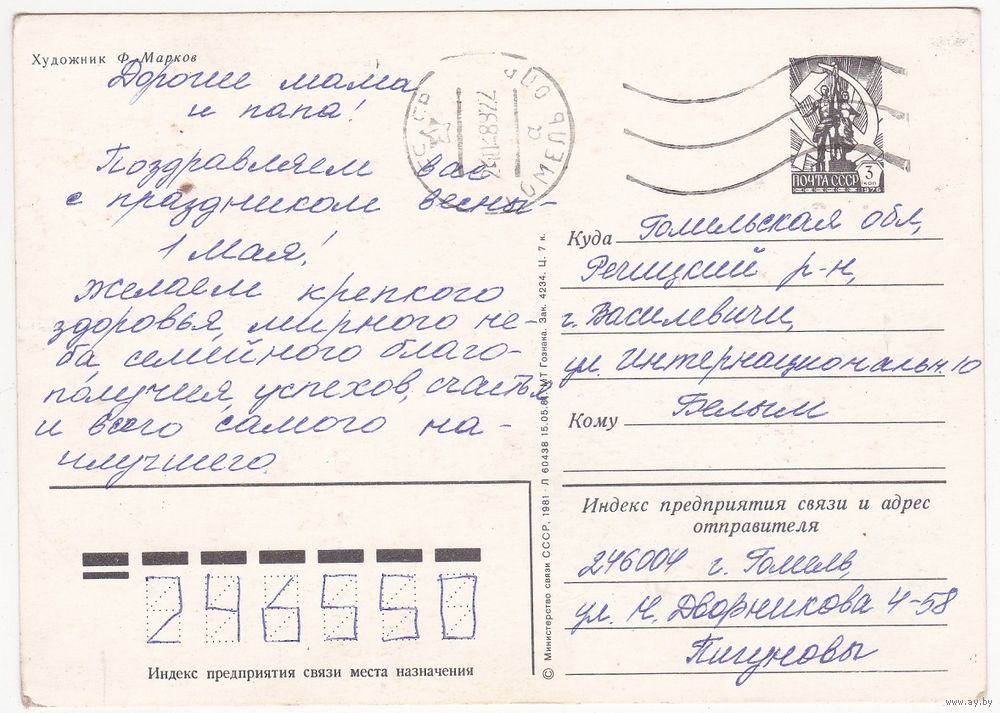 Художник Ф. Марков
Дорогие мама
и папа!
Поздравляем вас
с праздником весны -
1 Мая!
Желаем крепкого
здоровья, мирного не-
ба, семейного благо-
получия, успехов, счастья
и всего самого на-
илучшего.
ПОЧТА СССР
3
КОП
1976
Куда Гомельская обл,
Речицкий р-н,
г. Василевичи,
ул. Интернациональн. 10
Кому Белым
Индекс предприятия связи и адрес
отправителя
246004 г. Гомель,
ул. Н. Дворникова 4-58
Пигуновы
© Министерство связи СССР, 1981 · Л 60438 15.05.81. МТ Гознака. Зак. 4234. Ц. 7 к.
246550
Индекс предприятия связи места назначения
www.ay.by